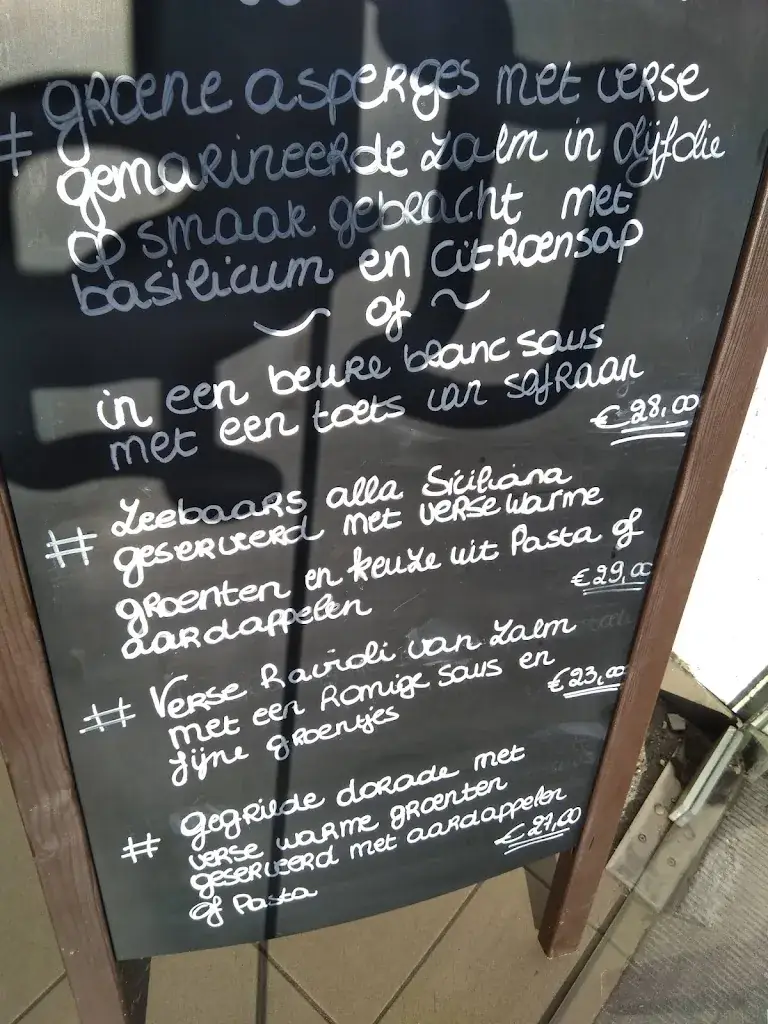 # groene asperges met verse
gemarineerde zalm in olijfolie
op smaak gebracht met
basilicum en citroensap
~ of ~
in een beure blanc saus
met een toets van safraan
€ 28,00
# Zeebaars alla Siciliana
geserveerd met verse warme
groenten en keuze uit Pasta of
aardappelen
€ 29,00
# Verse Ravioli van Zalm
met een Romige saus en
fijne groentjes
€ 23,00
# gegrilde dorade met
verse warme groenten
geserveerd met aardappelen
of Pasta
€ 27,00